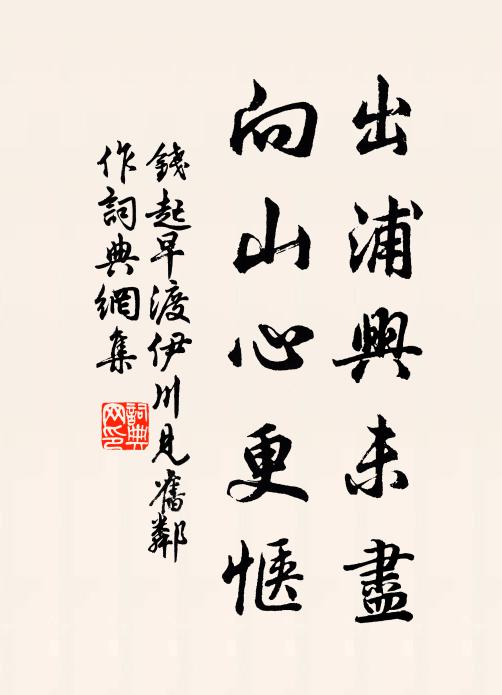 出浦興未盡
向山心更惬
錢起早渡伊川見舊鄰
作詞典網集
詞典网印